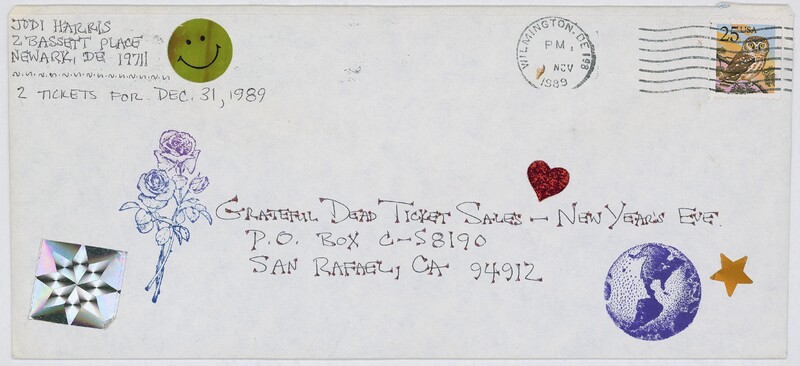 JODI HARRIS
2 BASSETT PLACE
NEWARK, DE 19711
2 TICKETS FOR DEC. 31, 1989
WILMINGTON, DE 198
PM
NOV
1989
25 USA
GRATEFUL DEAD TICKET SALES – NEW YEAR'S EVE
P.O. BOX C-S8190
SAN RAFAEL, CA 94912